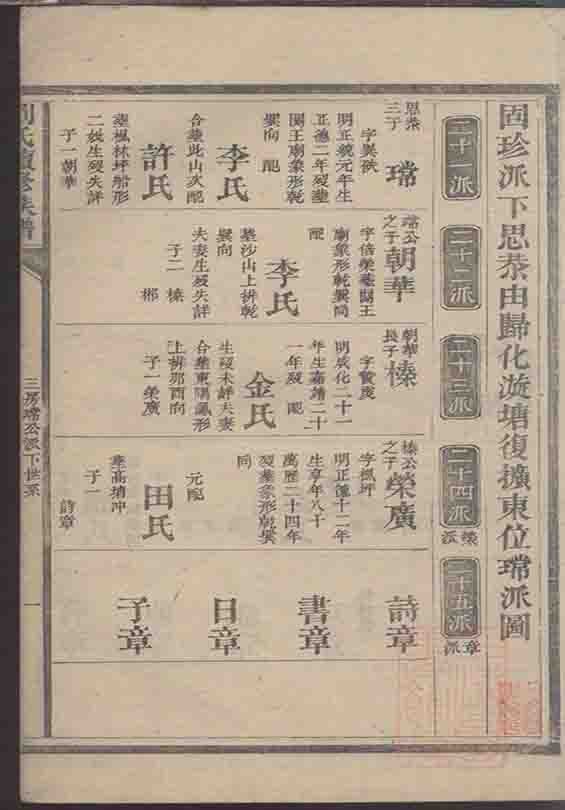 固珍派下思恭由歸化漩塘復擴東位瑺派圖
二十一派
二十二派
二十三派
二十四派
榮派
二十五派
章派
思恭
三子
瑺
字異欽
明正統元年生
正德二年歿塟
関王廟象形乾
巽向 配
李氏
合塟此山次配
許氏
塟楓林坪船形
二妣生歿失詳
子一朝華
瑺公
之子
朝華
字倍榮塟関王
廟象形乾巽向
配
李氏
塟沙山上排乾
巽向
夫妻生歿失詳
子二 榛
梆
朝華
長子
榛
字贊茂
明成化二十一
年生嘉靖二十
一年歿 配
金氏
生歿未詳夫妻
合塟東陽鳳形
上排卯酉向
子一榮廣
榛公
之子
榮廣
字楓坪
明正德十二年
生享年八十
萬歷二十四年
歿塟象形乾巽
向
元配
田氏
塟高靖冲
子一
詩章
詩章
書章
日章
子章
三房瑺公派下世系
一